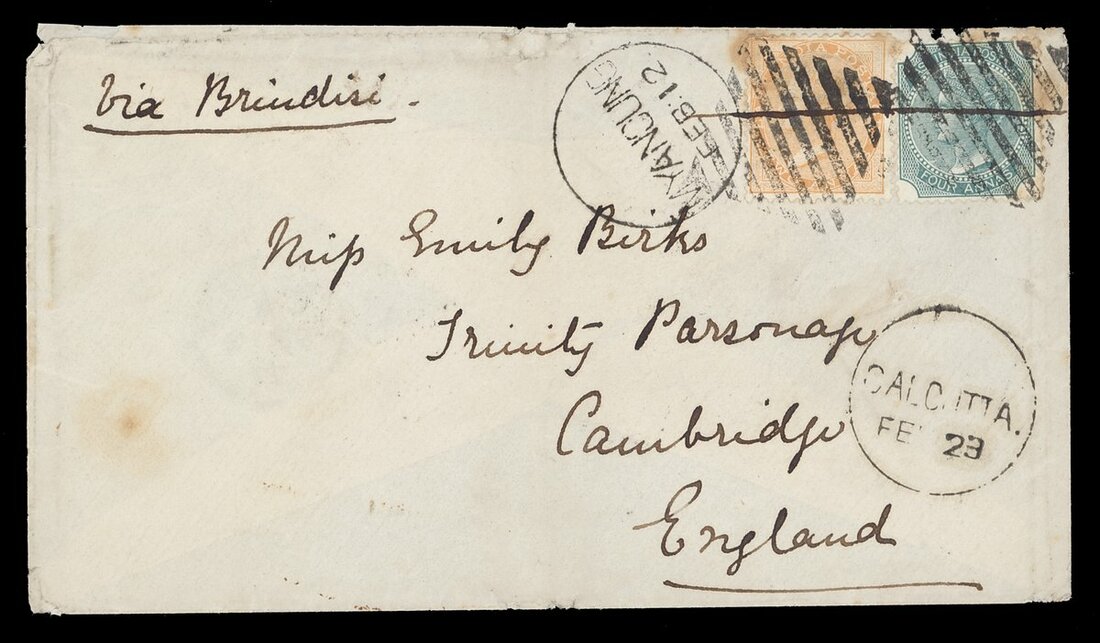 Via Brindisi.
MYANOUNG
FEB: 12
INDIA POSTAGE
FOUR ANNAS
Miss Emily Birks
Trinity Parsonage
Cambridge
England
CALCUTTA.
FE 23